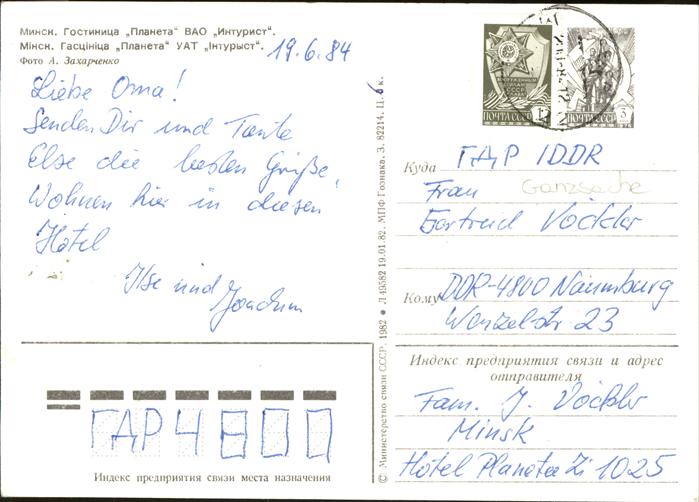 Минск. Гостиница „Планета“ ВАО „Интурист“.
Мінск. Гасцініца „Планета“ УАТ „Інтурыст“.
Фото А. Захарченко
19.6.84
Liebe Oma!
Senden Dir und Tante
Else die besten Grüße,
Wohnen hier in diesem
Hotel
Ilse und
Joachim
© Министерство связи СССР. 1982 ● Л 49582 19.01.82. МПФ Гознака. З. 82214. Ц. 6 к.
ПОЧТА СССР
ПОЧТА СССР 3
Куда ГДР / DDR
Frau Ganzsache
Gertrud Vöckler
Кому DDR-4800 Naumburg
Wenzelstr 23
Индекс предприятия связи и адрес
отправителя
Fam. J. Vöckler
Minsk
Hotel Planeta Zi 1025
ГДР 4800
Индекс предприятия связи места назначения